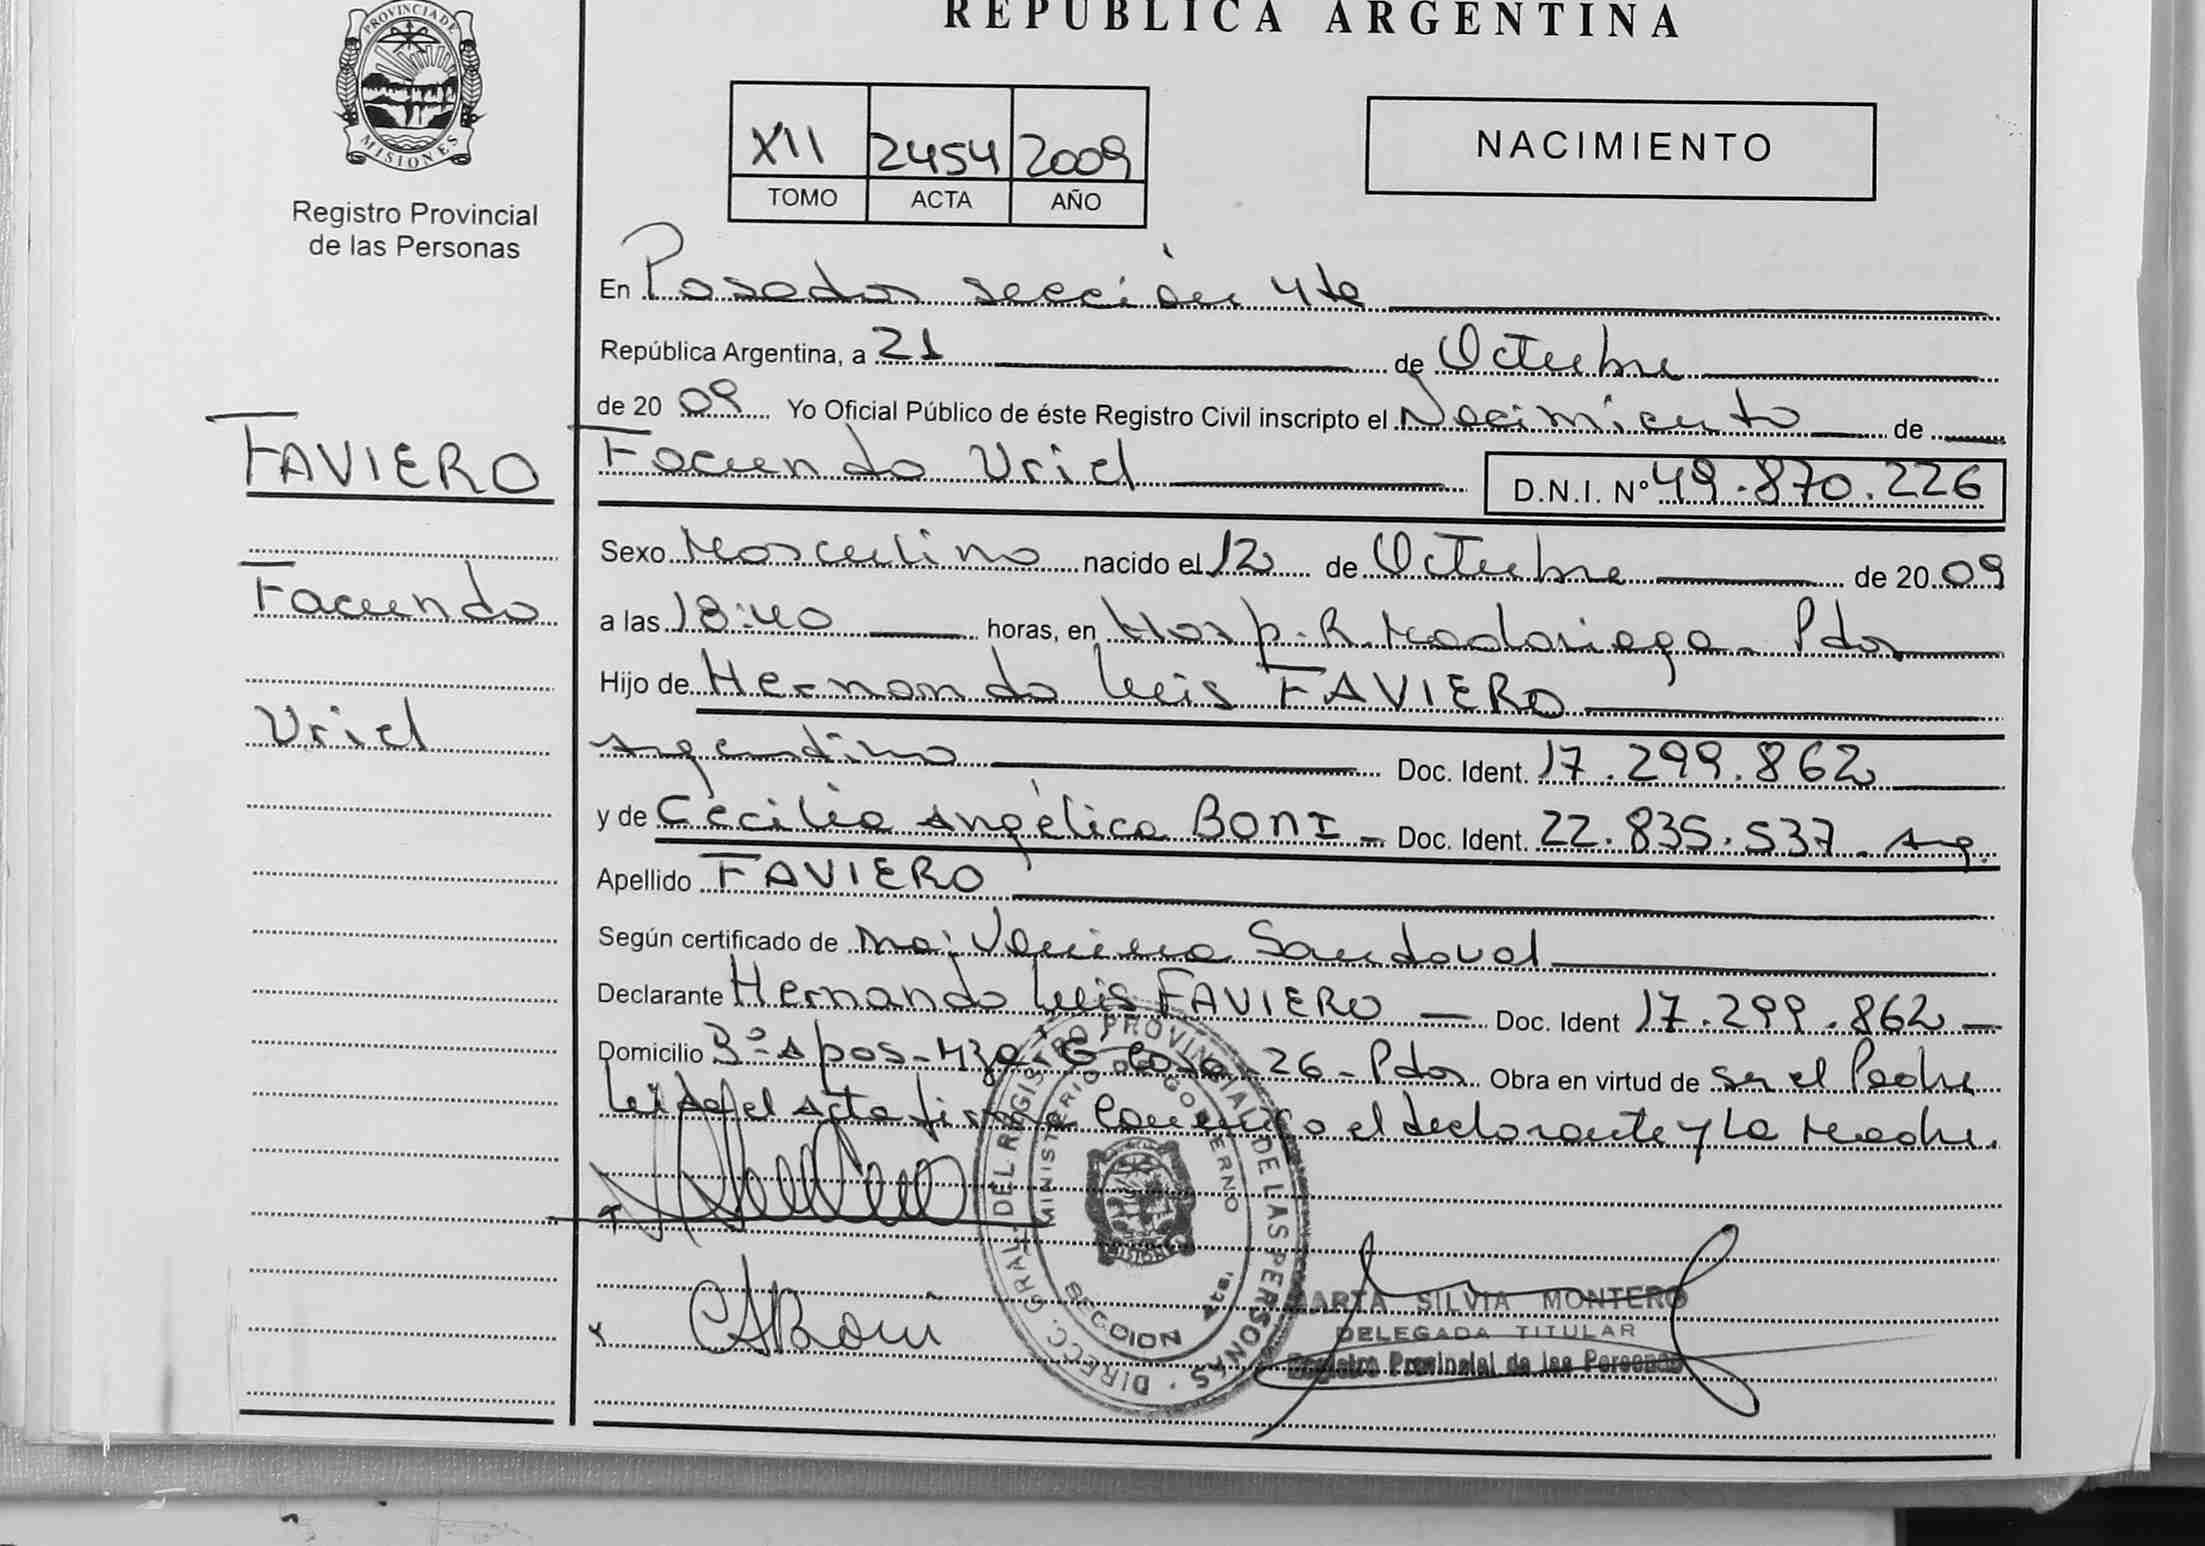 REPUBLICA ARGENTINA
PROVINCIA DE
MISIONES
Registro Provincial
de las Personas
XII 2454 2009
TOMO ACTA AÑO
NACIMIENTO
En Posadas sección 4ta
República Argentina, a 21 de Octubre
de 20 09 Yo Oficial Público de éste Registro Civil inscripto el Nacimiento de
Facundo Uriel D.N.I. Nº 49.870.226
FAVIERO
Facundo
Uriel
Sexo Masculino nacido el 12 de Octubre de 20 09
a las 18:40 horas, en Hosp. R. Madariaga - Pdas
Hijo de Hernando Luis FAVIERO
Argentino Doc. Ident. 17.299.862
y de Cecilia Angélica BONI - Doc. Ident. 22.835.537 - Arg.
Apellido FAVIERO
Según certificado de Sandoval
Declarante Hernando Luis FAVIERO - Doc. Ident 17.299.862 -
Domicilio Bº A pos - Mza G Casa 26 - Pdas Obra en virtud de ser el Padre
Leida el acta firma conmigo el declarante y la Madre.
DIRECC. GRAL. DEL REGISTRO PROVINCIAL DE LAS PERSONAS
MINISTERIO DE GOBIERNO
SECCION 4ta.
MISIONES
CABoni
MARTA SILVIA MONTERO
DELEGADA TITULAR
Registro Provincial de las Personas